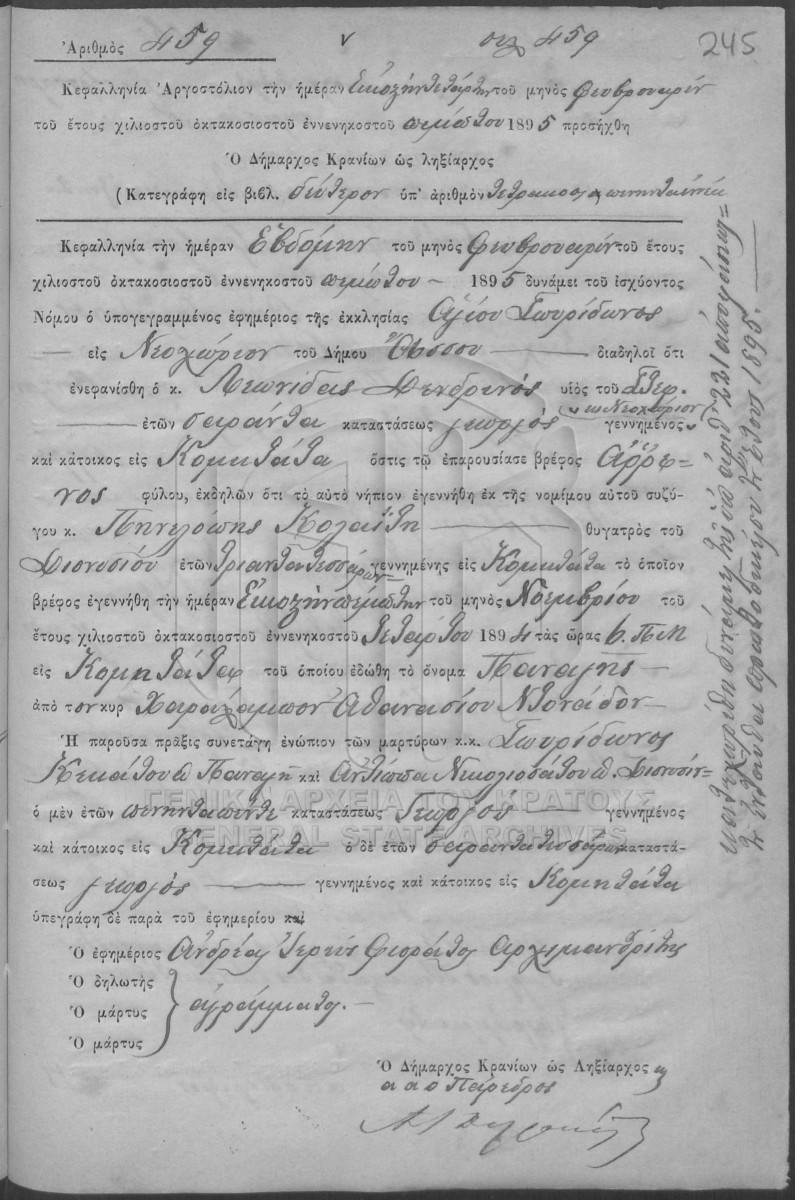 Ἀριθμὸς 459 459 245
Κεφαλληνία Ἀργοστόλιον τὴν ἡμέραν Εἰκοστὴν τετάρτην τοῦ μηνὸς Φεβρουαρίου
τοῦ ἔτους χιλιοστοῦ ὀκτακοσιοστοῦ ἐννενηκοστοῦ πέμπτου 1895 προσήχθη
Ὁ Δήμαρχος Κρανίων ὡς ληξίαρχος
(Κατεγράφη εἰς βιβλ. δεύτερον ὑπ' ἀριθμὸν
Κεφαλληνία τὴν ἡμέραν Ἑβδόμην τοῦ μηνὸς Φεβρουαρίου τοῦ ἔτους
χιλιοστοῦ ὀκτακοσιοστοῦ ἐννενηκοστοῦ πέμπτου 1895 δυνάμει τοῦ ἰσχύοντος
Νόμου ὁ ὑπογεγραμμένος ἐφημέριος τῆς ἐκκλησίας Ἁγίου Σπυρίδωνος
εἰς Νεοχώριον τοῦ Δήμου διαδηλοῖ ὅτι
ἐνεφανίσθη ὁ κ. Λεωνίδας Δενδρινὸς υἱὸς τοῦ Στεφ.
ἐτῶν σαράντα καταστάσεως γεωργὸς γεννημένος εις Νεοχώριον
καὶ κάτοικος εἰς Κομητάτα ὅστις τῷ ἐπαρουσίασε βρέφος ἄρρε-
νος φύλου, ἐκδηλῶν ὅτι τὸ αὐτὸ νήπιον ἐγεννήθη ἐκ τῆς νομίμου αὐτοῦ συζύ-
γου κ. Πηνελόπης Κολαΐτη θυγατρὸς τοῦ
Διονυσίου ἐτῶν τριάντα τεσσάρων γεννημένης εἰς Κομητάτα τὸ ὁποῖον
βρέφος ἐγεννήθη τὴν ἡμέραν Εἰκοστὴν πέμπτην τοῦ μηνὸς Νοεμβρίου τοῦ
ἔτους χιλιοστοῦ ὀκτακοσιοστοῦ ἐννενηκοστοῦ τετάρτου 1894 τὰς ὥρας 6. Π.Μ
εἰς Κομητάτα τοῦ ὁποίου ἐδώθη τὸ ὄνομα Παναγῆς
ἀπὸ τον κυρ Χαράλαμπον Ἀθανασίου
Ἡ παροῦσα πρᾶξις συνετάγη ἐνώπιον τῶν μαρτύρων κ.κ. Σπυρίδωνος
Κεκάτου Παναγῆ καὶ Ἀντίωπα Νικολισάτου Διονυσίου
ὁ μὲν ἐτῶν πενῆντα πέντε καταστάσεως Γεωργὸς γεννημένος
καὶ κάτοικος εἰς Κομητάτα ὁ δὲ ἐτῶν σαράντα τεσσάρων καταστά-
σεως γεωργὸς γεννημένος καὶ κάτοικος εἰς Κομητάτα
ὑπεγράφη δὲ παρὰ τοῦ ἐφημερίου καὶ
Ὁ ἐφημέριος Ἀνδρέας Ἱερεὺς Φωρᾶτος Ἀρχιμανδρίτης
Ὁ δηλωτὴς
Ὁ μάρτυς ἀγράμματοι.
Ὁ μάρτυς
Ὁ Δήμαρχος Κρανίων ὡς Ληξίαρχος
α α ο Πάρεδρος
κατεχωρίσθη δυνάμει τῆς ὑπ' ἀριθ. 221 ἀποφάσεως
ἐνταῦθα πρωτοδικείου ἔτους 1895.
ΓΕΝΙΚΑ ΑΡΧΕΙΑ ΤΟΥ ΚΡΑΤΟΥΣ
GENERAL STATE ARCHIVES